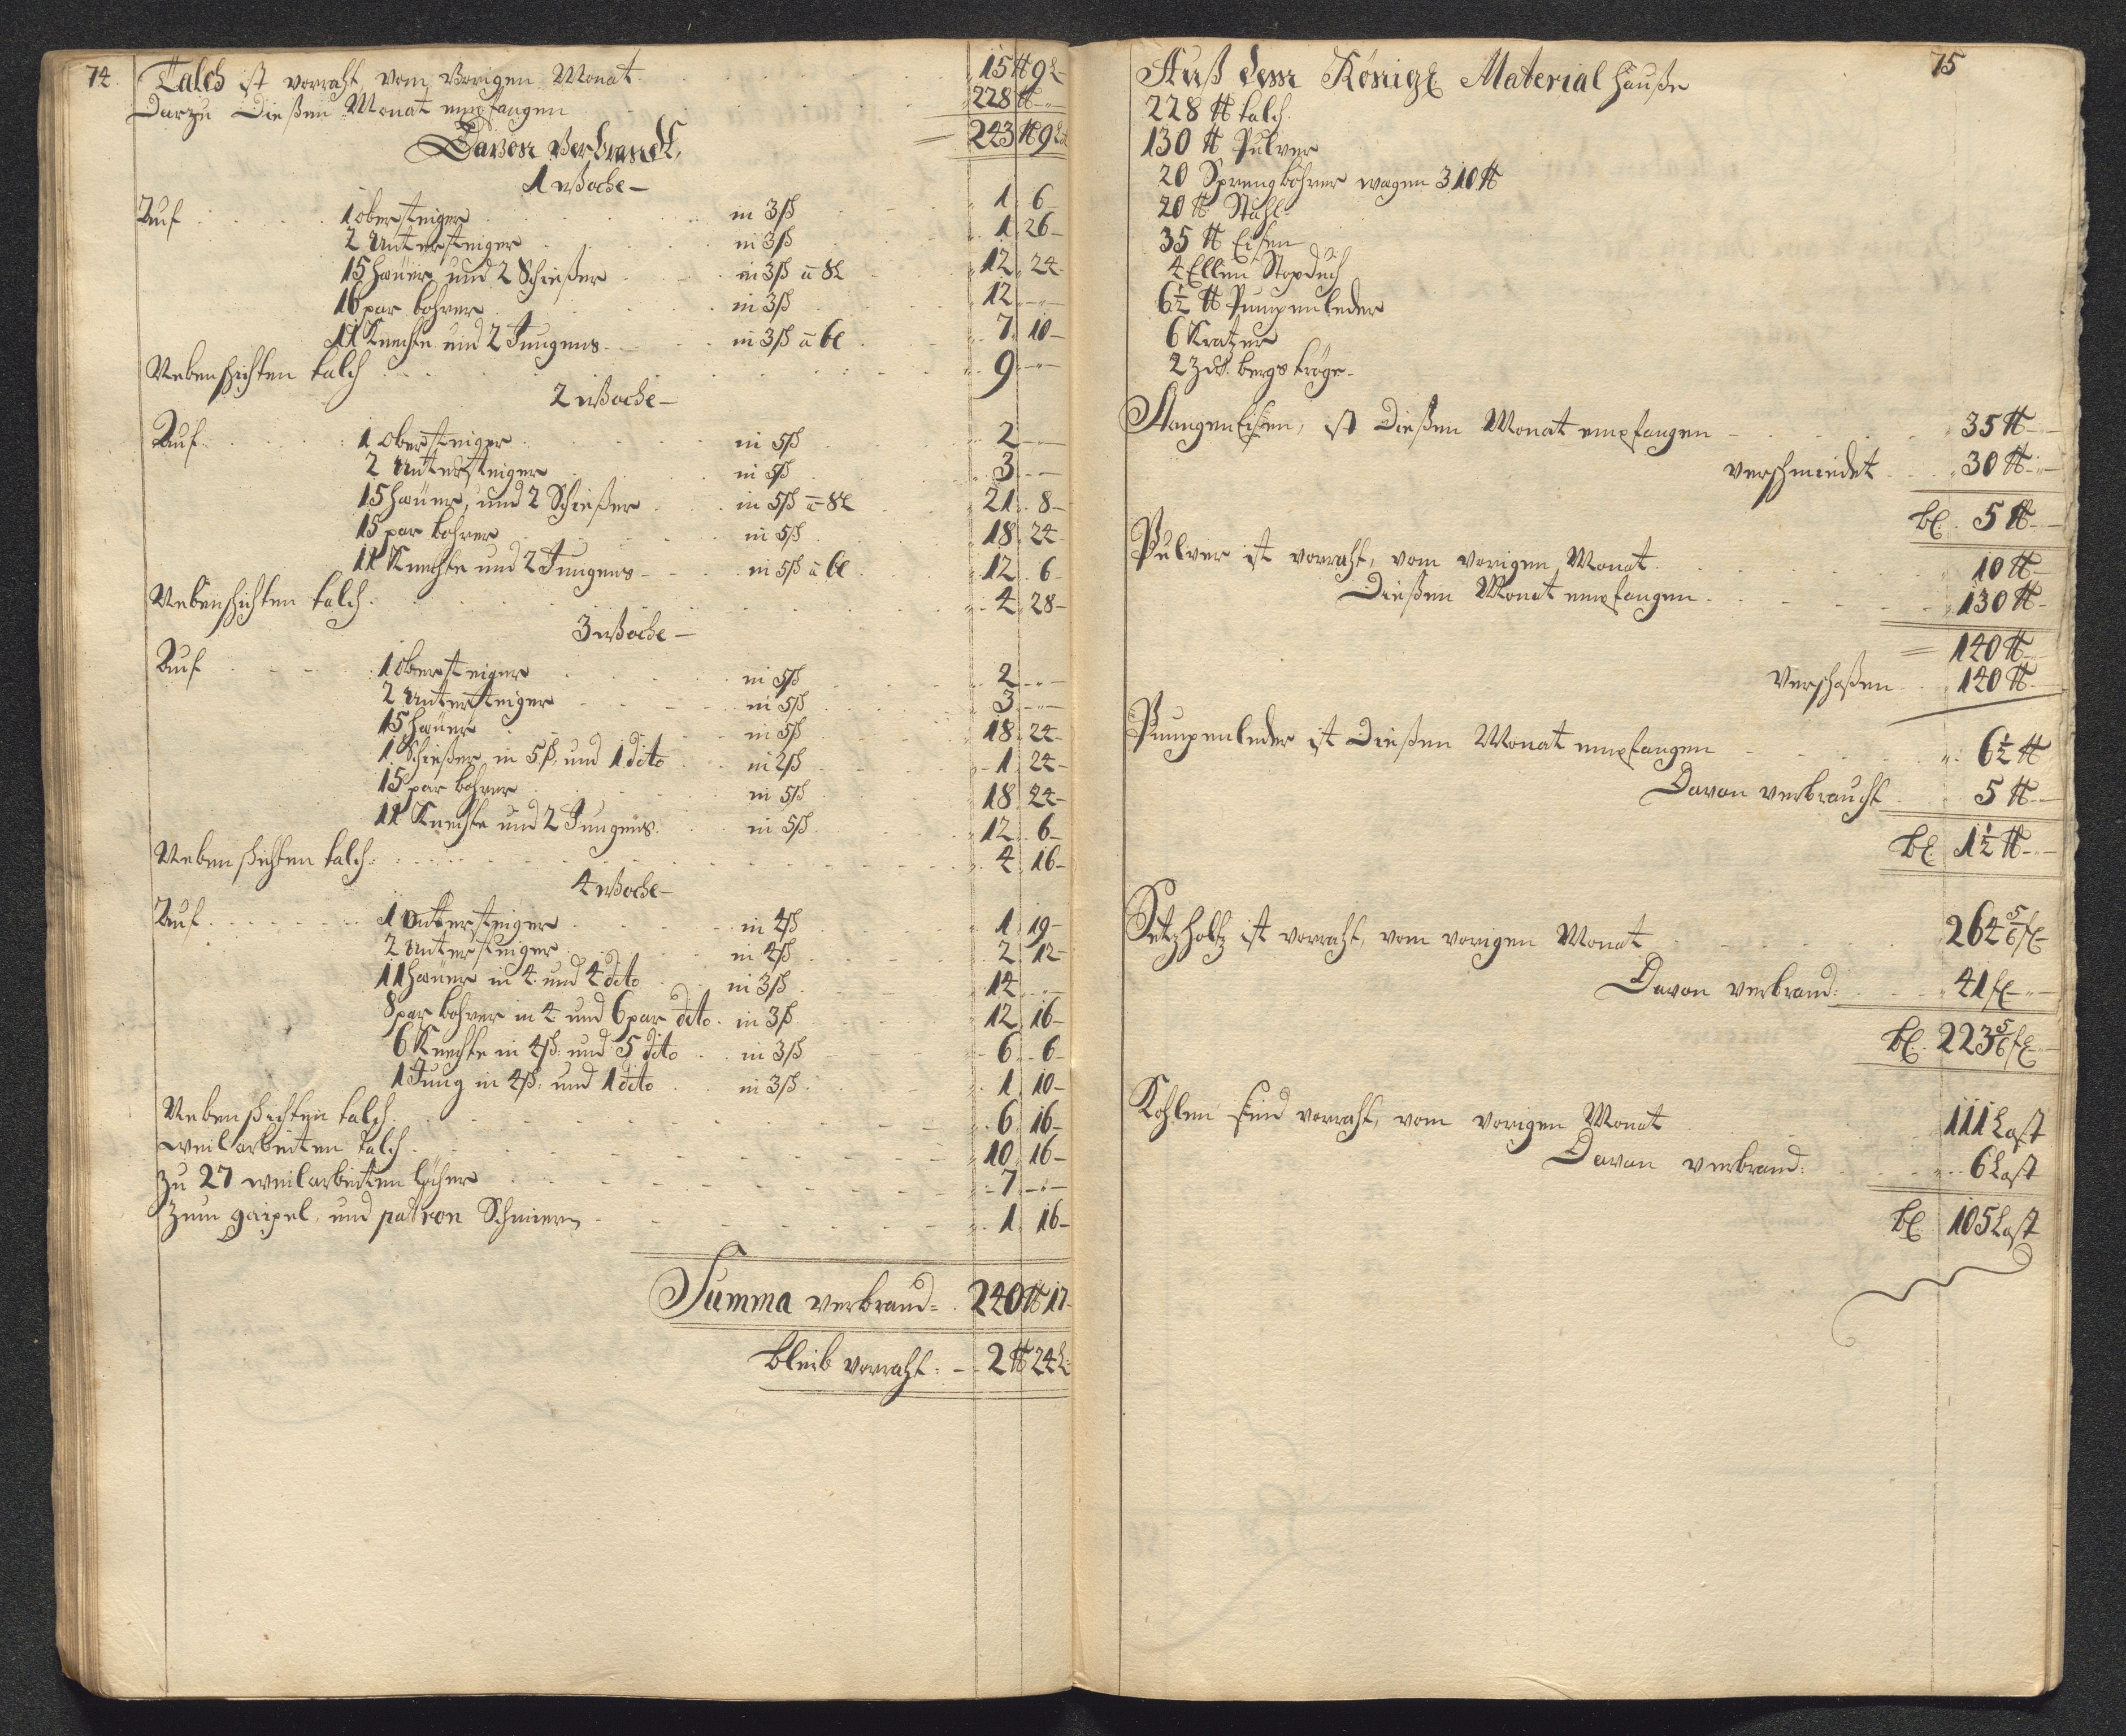 74.
Talch ist vorraht, vom Vorigen Monat 15 ℔ 9 L
Darzu Dießen Monat empfangen 228 ℔
243 ℔ 9 L
Davon Verbrandt,
1 Woche
Auf 1 obersteiger in 3ß 1 6
2 Untersteiger in 3ß 1 26
15 Häuer und 2 Schießer in 3ß a 8L 12 24
16 par bohrer in 3ß 12
11 Knechte und 2 Jungens in 3ß a 6L 7 10
Nebenschichten talch 9
2 Woche
Auf 1 Obersteiger in 5ß 2
2 Untersteiger in 5ß 3
15 Häuer, und 2 Schießer in 5ß a 8L 21 8
15 par bohrer in 5ß 18 24
11 Knechte und 2 Jungens in 5ß a 6L 12 6
Nebenschichten talch 4 28
3 Woche
Auf 1 Obersteiger in 5ß 2
2 Untersteiger in 5ß 3
15 Häuer in 5ß 18 24
1 Schießer in 5ß und 1 dito in 2ß 1 24
15 par bohrer in 5ß 18 24
11 Knechte und 2 Jungens in 5ß 12 6
Nebenschichten talch 4 16
4 Woche
Auf 1 Untersteiger in 4ß 1 19
2 Untersteiger in 4ß 2 12
11 Häuer in 4 und 4 dito in 3ß 14
8 par bohrer in 4 und 6 par dito in 3ß 12 16
6 Knechte in 4ß und 5 dito in 3ß 6 6
1 Jung in 4ß und 1 dito in 3ß 1 10
Nebenschichten talch 6 16
weilarbeiten talch 10 16
zu 27 weilarbeiten löcher 7
zum garpel, und patron Schmieren 1 16
Summa verbrand 240 ℔ 17
bleib vorraht 2 ℔ 24 L
75
Auß dem Königl Material Hauße
228 ℔ talch
130 ℔ Pulver
20 Sprengbohrer wagen 310 ℔
20 ℔ Stahl
35 ℔ Eisen
4 Ellen Stopduch
6½ ℔ Pumpenleder
6 Kratzer
2 bergs tröge
Stangen Eisen, ist Dießen Monat empfangen 35 ℔
verschmiedet 30 ℔
bl. 5 ℔
Pulver ist vorraht, vom vorigen Monat 10 ℔
Dießen Monat empfangen 130 ℔
140 ℔
verschoßen 140 ℔
Pumpenleder ist Dießen Monat empfangen 6½ ℔
Davon verbraucht 5 ℔
bl. 1½ ℔
Setzholtz ist vorraht, vom vorigen Monat 264 5/6 fl
Davon verbrand 41 fl
bl. 223 5/6 fl
Kohlen sind vorraht, vom vorigen Monat 111 Last
Davon verbrand 6 Last
bl. 105 Last